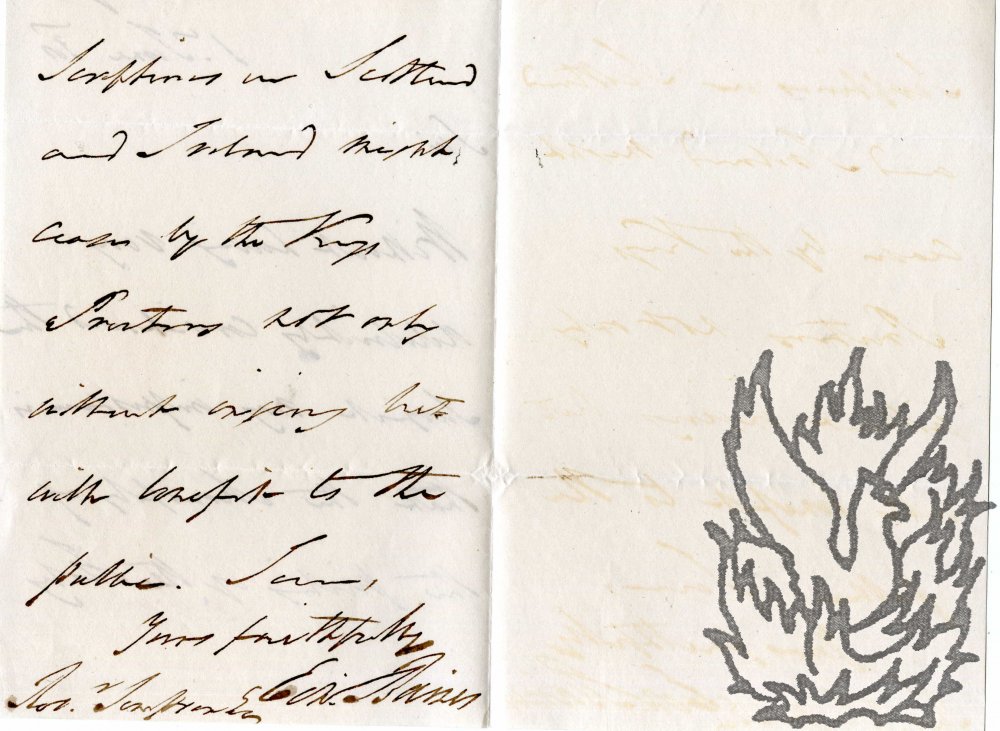 Scriptures in Scotland
and Ireland might
cease by the Kings
Printers not only
without injury but
with benefit to the
public. I am,
Yours faithfully
Edw. Baines